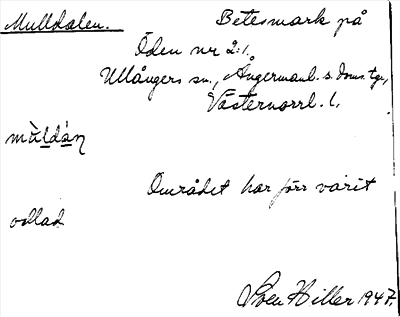 Mulldalen. Betesmark på
Öden nr 2:1.
Ullångers sn., Ångermanl. s. doms. tgr,
Västernorrl. l.
mùldán
Området har förr varit
odlad
Sven Hiller 1947.